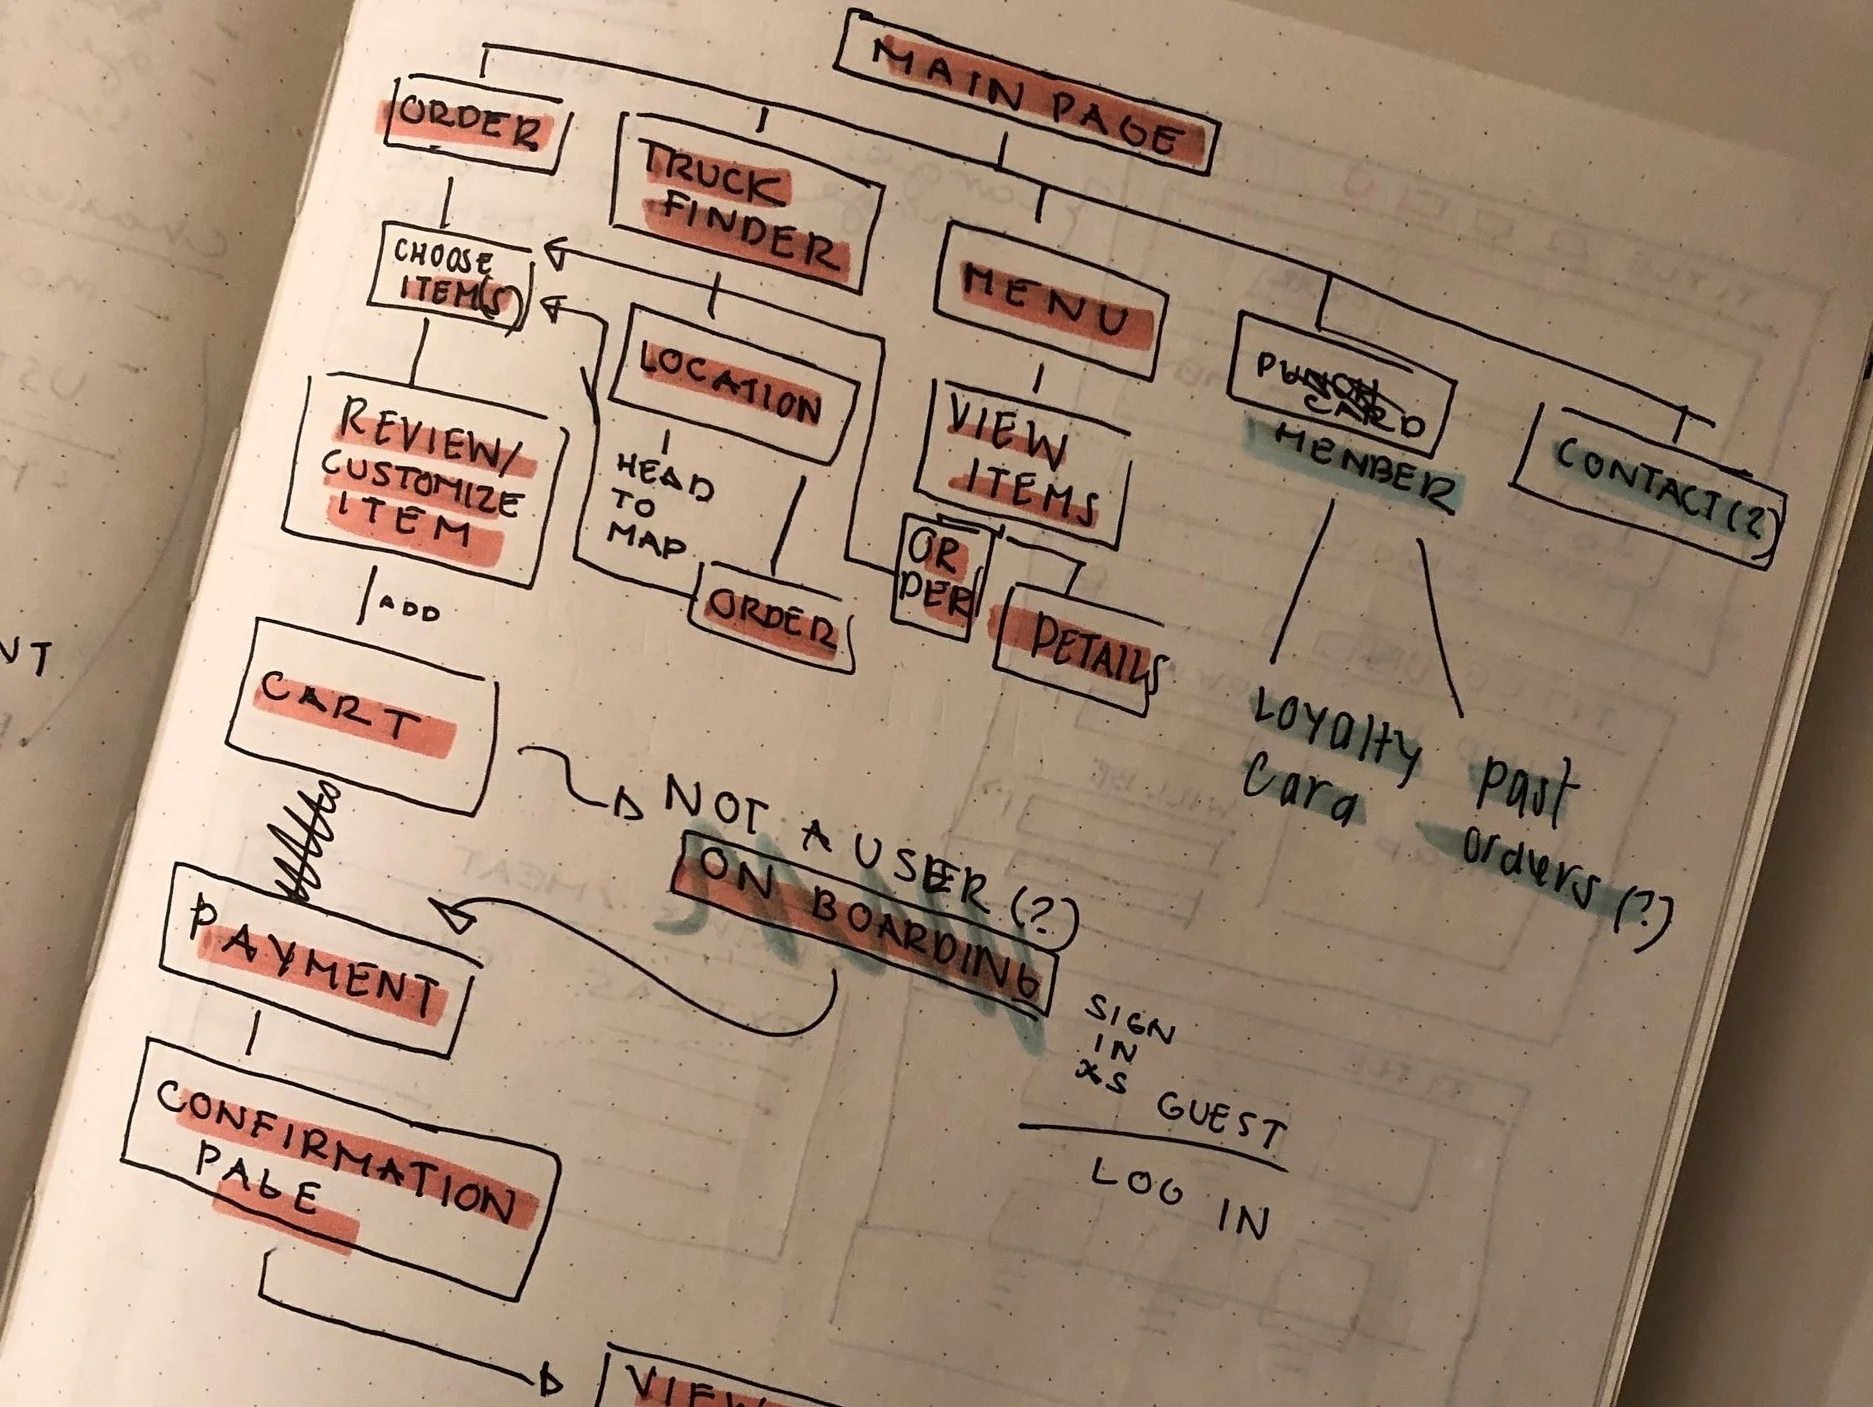 MAIN PAGE
ORDER
TRUCK
FINDER
MENU
PUNCH
CARD
MEMBER
CONTACT(?)
CHOOSE
ITEM(S)
LOCATION
VIEW
ITEMS
REVIEW/
CUSTOMIZE
ITEM
HEAD
TO
MAP
ORDER
OR
DER
DETAILS
ADD
CART
LOYALTY
Card
past
orders(?)
NOT A USER(?)
ON BOARDING
PAYMENT
SIGN
IN
GUEST
LOG IN
CONFIRMATION
PAGE
VIEW
NT